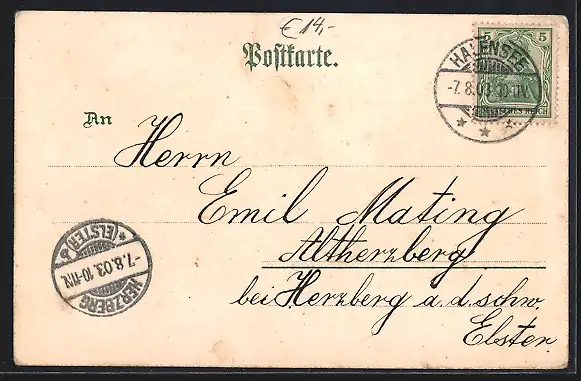 € 14,-
Postkarte.
5 5
HALENSEE
-7.8.03.10-11V.
DEUTSCHES REICH
An
Herrn
Emil Mating
Altherzberg
bei Herzberg a. d. schw.
Elster.
(ELSTER)
-7.8.03.10-11V.
HERZBERG